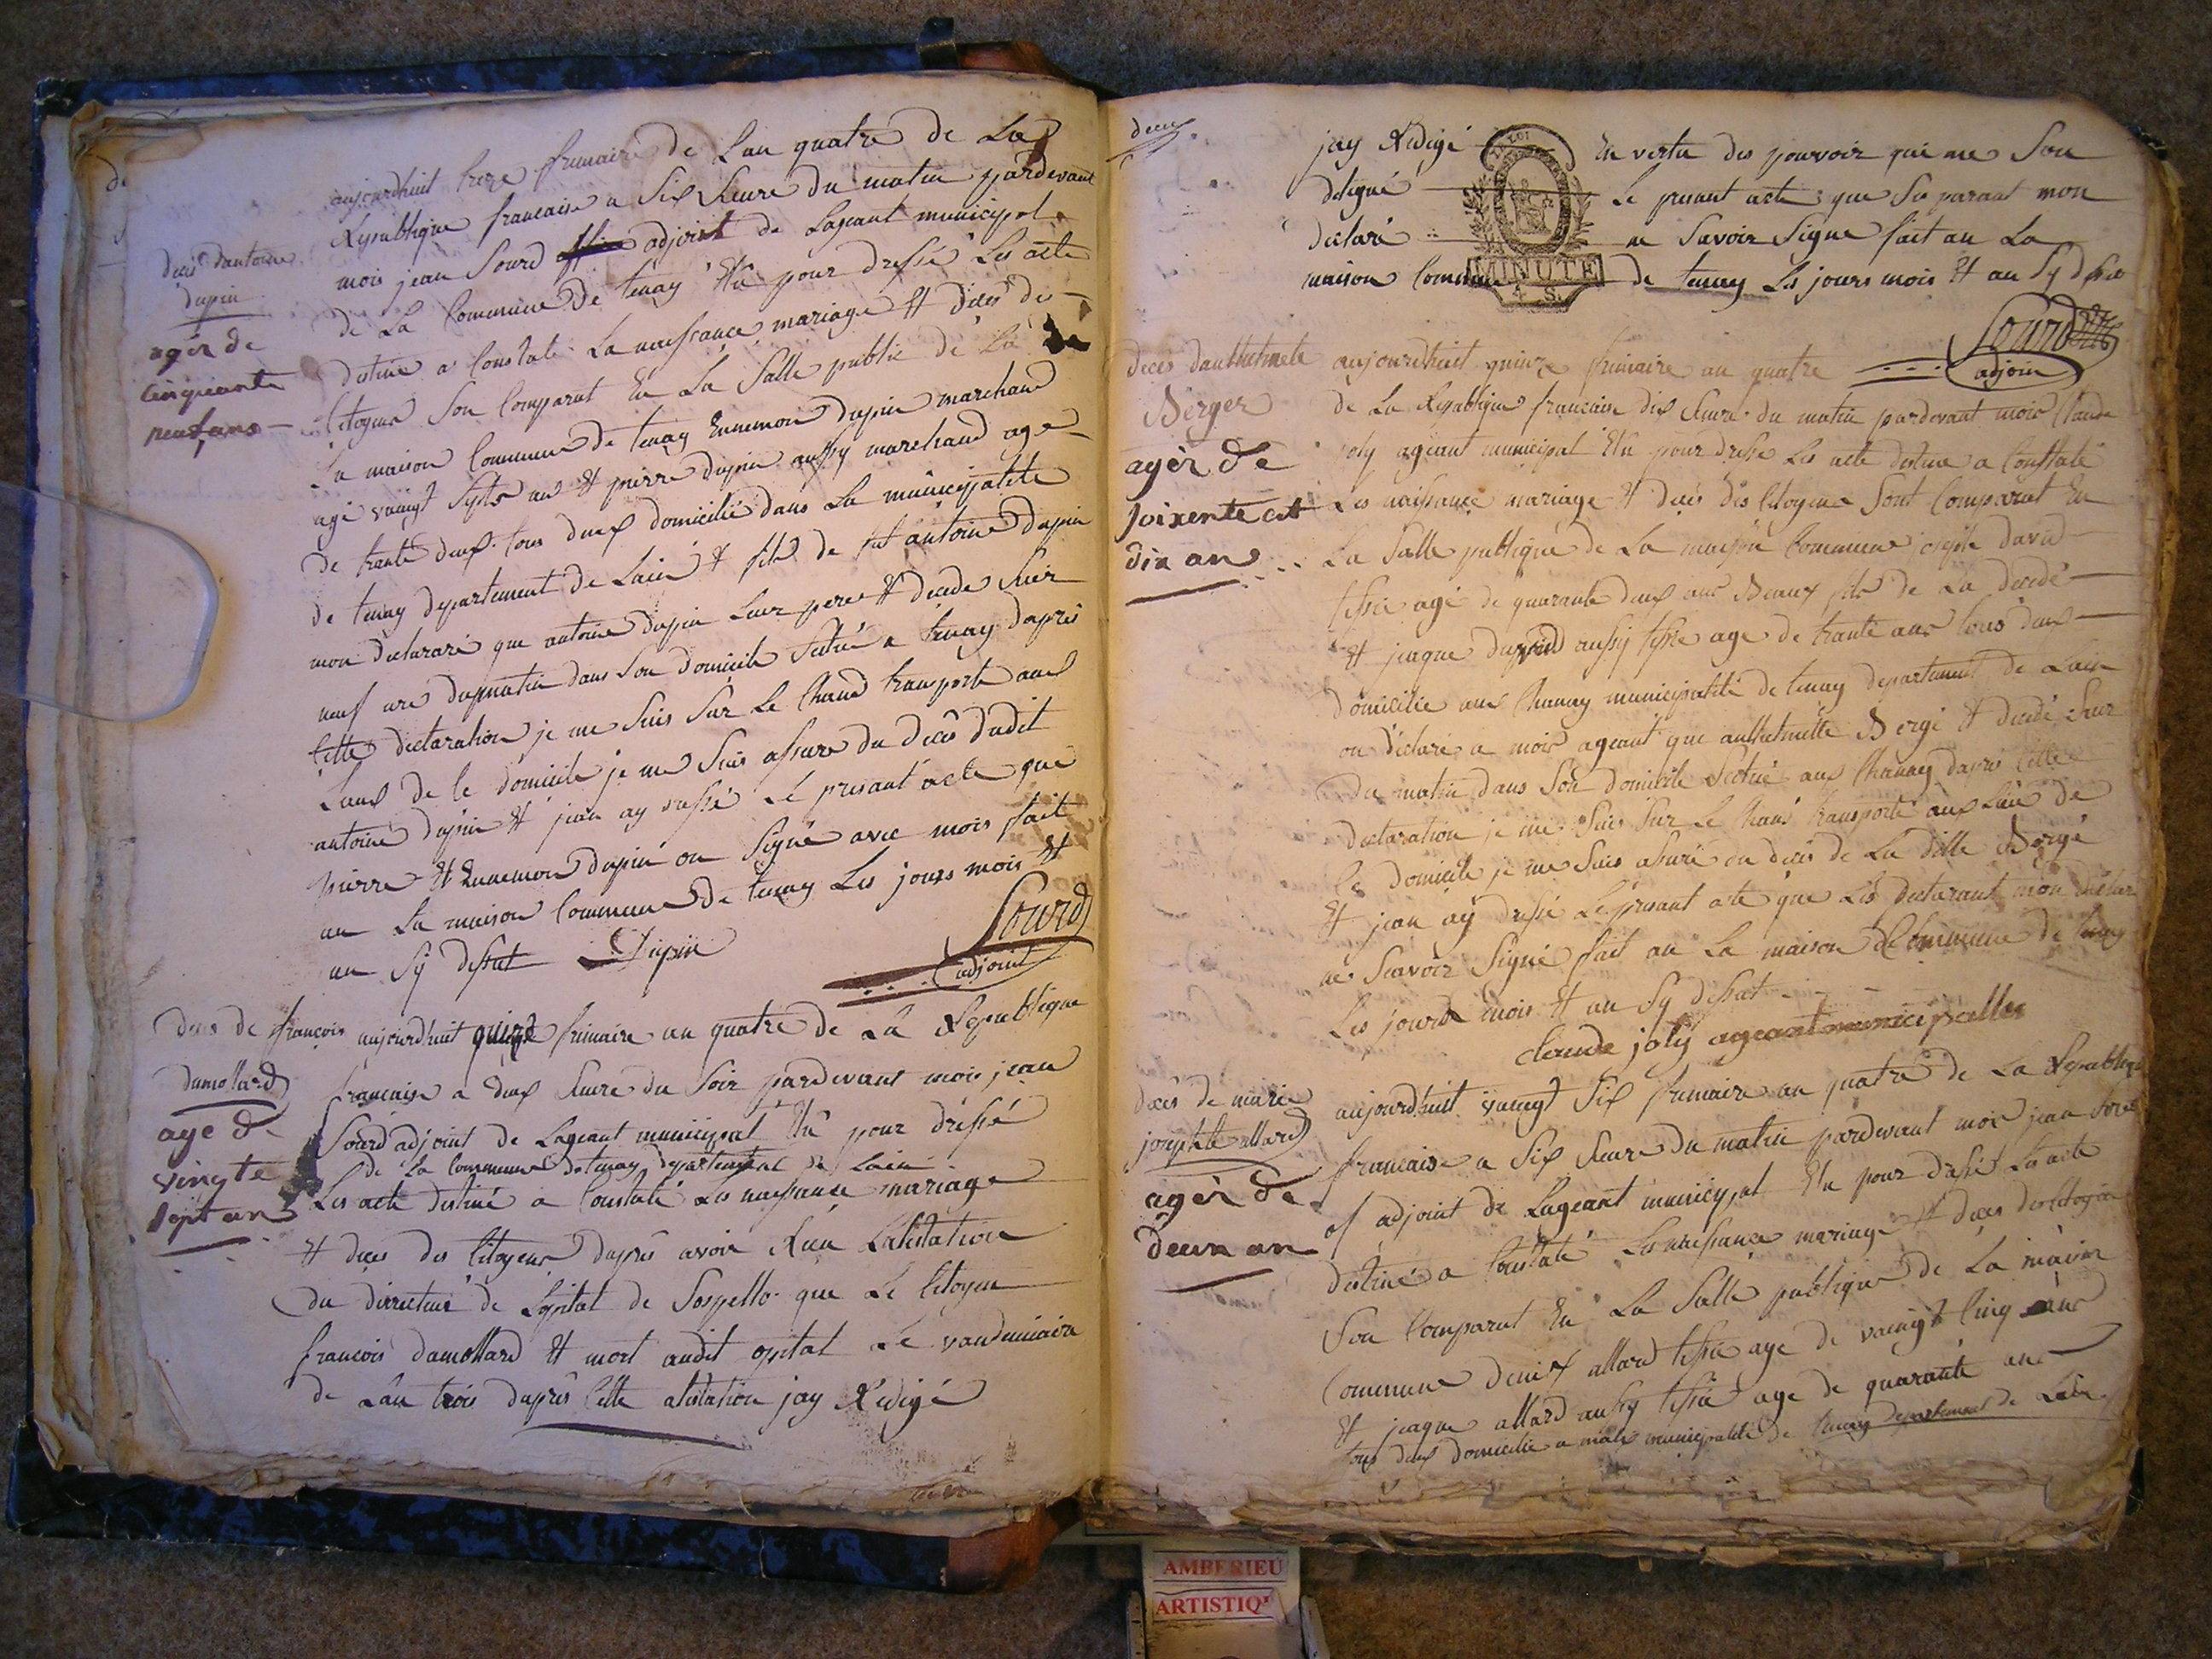 decès dantoine
dupin
agér de
cinquante
neuf ans
aujourdhuit treze frimaire de Lan quatre de La
Republique francaise a Six Heure du matin pardevant
mois jean Sourd adjoint de Lageant municipal
de La Commune de tenay Elu pour dressé Les acte
destiné a Constaté La naissance mariage Et decès de
Citoyens Son Comparut En La Salle public de La
La maison Commune de tenay Ennemon dupin marchand
agé vaingt Septs ans Et pierre dupin aussy marchand age
de trante deux tous deux domicilié dans La municipalité
de tenay departement de Lain Et fils de fut antoine dupin
mon declararé que antoine dupin Leur pere Et decede hier
neuf ure du matin dans Son domicile Sctué a tenay dapres
Cette declaration je me Suis Sur Le Chand transporté aux
Leux de le domicile je me Suis assuré du decès dudit
antoine dupin Et jean ay dressé Le presant acte que
pierre Et Ennemon dupin on Signé avec mois fait
au La maison Commune de tenay Les jours mois Et
an Sy dessut Dupin
Sourd
adjoint
deces de françois
dumollard
age de
vingte
sept an
aujourdhuit quinze frimaire an quatre de La Republique
francaise a deux Heure du Soir pardevant mois jean
Sourd adjoint de Lageant municipal Elu pour dressé
de La Commune de tenay departement de Lain
Les acte destiné a Constaté Les naissance mariage
Et deces des Citoyens dapres avoir Recu Latestation
du dirrecteur de Lopital de Sospello que Le Citoyen
francois damollard Et mort audit opital Le vandemiaire
de Lan trois dapres Cette atestation jay Redigé
deux
jay Redigé En vertu des pouvoir qui me Son
deligué Le presant acte que Su parant mon
declaré ne Savoir Signe fait au La
maison Commune de tenay Les jours mois Et an Sy dessu
MINUTE
4 S.
Sourd
adjoin
deces danthelmete
Berger
agér de
soixente et
dix an
aujourdhuit quinze frimaire an quatre
de La Republique francaise dix Heure du matin pardevant mois Claude
joly ageant municipal Elu pour dresse Les acte destine a Constaté
Les naissance mariage Et decès des Citoyens Sont Comparut En
La Salle publique de La maison Commune joseph david
tissie agé de quarante deux ans Beaux fils de La decedé
Et jaque dupuid aussy tissie age de trante ans tous deux
domicilie aux Chanay municipalité de tenay departement de Lain
on declaré a mois ageant que anthelmette Bergé Et decedé Hier
du matin dans Son domicile Sctué aux Chanay dapré Cette
declaration je me Suis Sur Le Chand transporté aux Lieu de
Le domicile je me Suis assuré du decès de La ditte Bergé
Et jean ay dressé Le presant acte que Les declarant mon declaré
ne Scavoir Signé fait au La maison Commune de tenay
Les jours mois Et an Sy dessut
claude joly ageant municipalles
decès de marie
josephte allard
agér de
deux an
aujourdhuit vaingt Six frimaire an quatre de La Republique
francaise a Six Heure du matin pardevant mois jean Sourd
of adjoint de Lageant municipal Elu pour dressé Les acte
destiné a Constaté Les naissance mariage Et deces des Citoyens
Son Comparut En La Salle publique de La maison
Commune denis allard tissie age de vaingt Cinq ans
Et jaque allard aussy tissie age de quarante ans
tous deux domicilie a malix municipalité de tenay departement de Lain
AMBERIEU
ARTISTIQ'